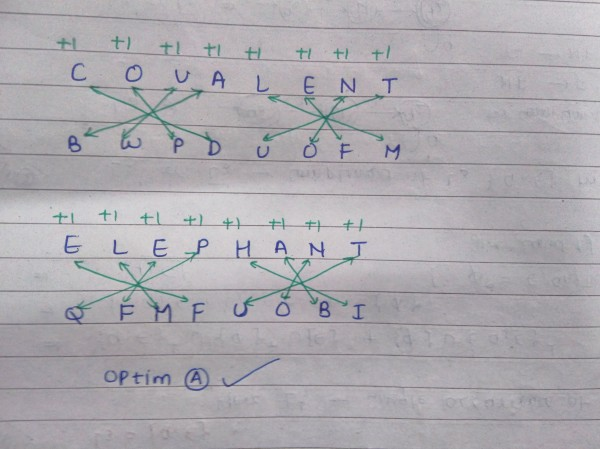 +1 +1 +1 +1 +1 +1 +1 +1
C O V A L E N T
B W P D U O F M
+1 +1 +1 +1 +1 +1 +1
E L E P H A N T
Q F M F U O B I
optim A ✓